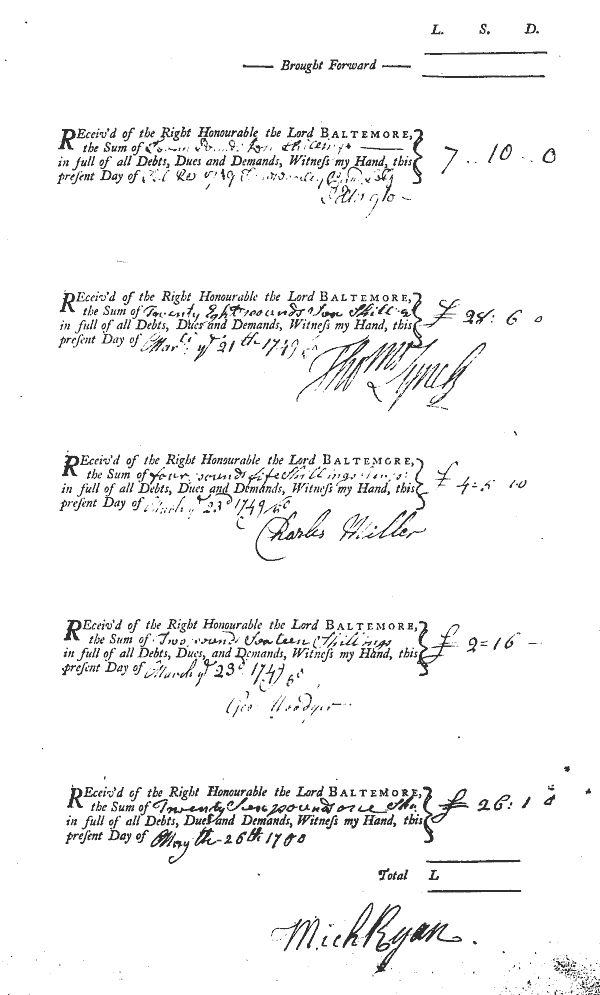 L. S. D.
Brought Forward
REceiv'd of the Right Honourable the Lord BALTEMORE,
the Sum of Seven pounds ten shillings
in full of all Debts, Dues and Demands, Witneſs my Hand, this 7 .. 10 .. 0
preſent Day of
REceiv'd of the Right Honourable the Lord BALTEMORE,
the Sum of Twenty Eght pounds Shill £ 28: 6 0
in full of all Debts, Dues and Demands, Witneſs my Hand, this
preſent Day of Mar ye 21th 1749
Thoms Lynch
REceiv'd of the Right Honourable the Lord BALTEMORE,
the Sum of four pounds fife Shillings £ 4=5 10
in full of all Debts, Dues and Demands, Witneſs my Hand, this
preſent Day of March ye 23d 1749/50
Charles Miller
REceiv'd of the Right Honourable the Lord BALTEMORE,
the Sum of Two pounds Shillings £ 2=16 -
in full of all Debts, Dues, and Demands, Witneſs my Hand, this
preſent Day of March ye 23d 1749/50
Geo
REceiv'd of the Right Honourable the Lord BALTEMORE,
the Sum of Twenty pound one £ 26: 1 0
in full of all Debts, Dues and Demands, Witneſs my Hand, this
preſent Day of May the 26th
Total L
Mich Ryan.